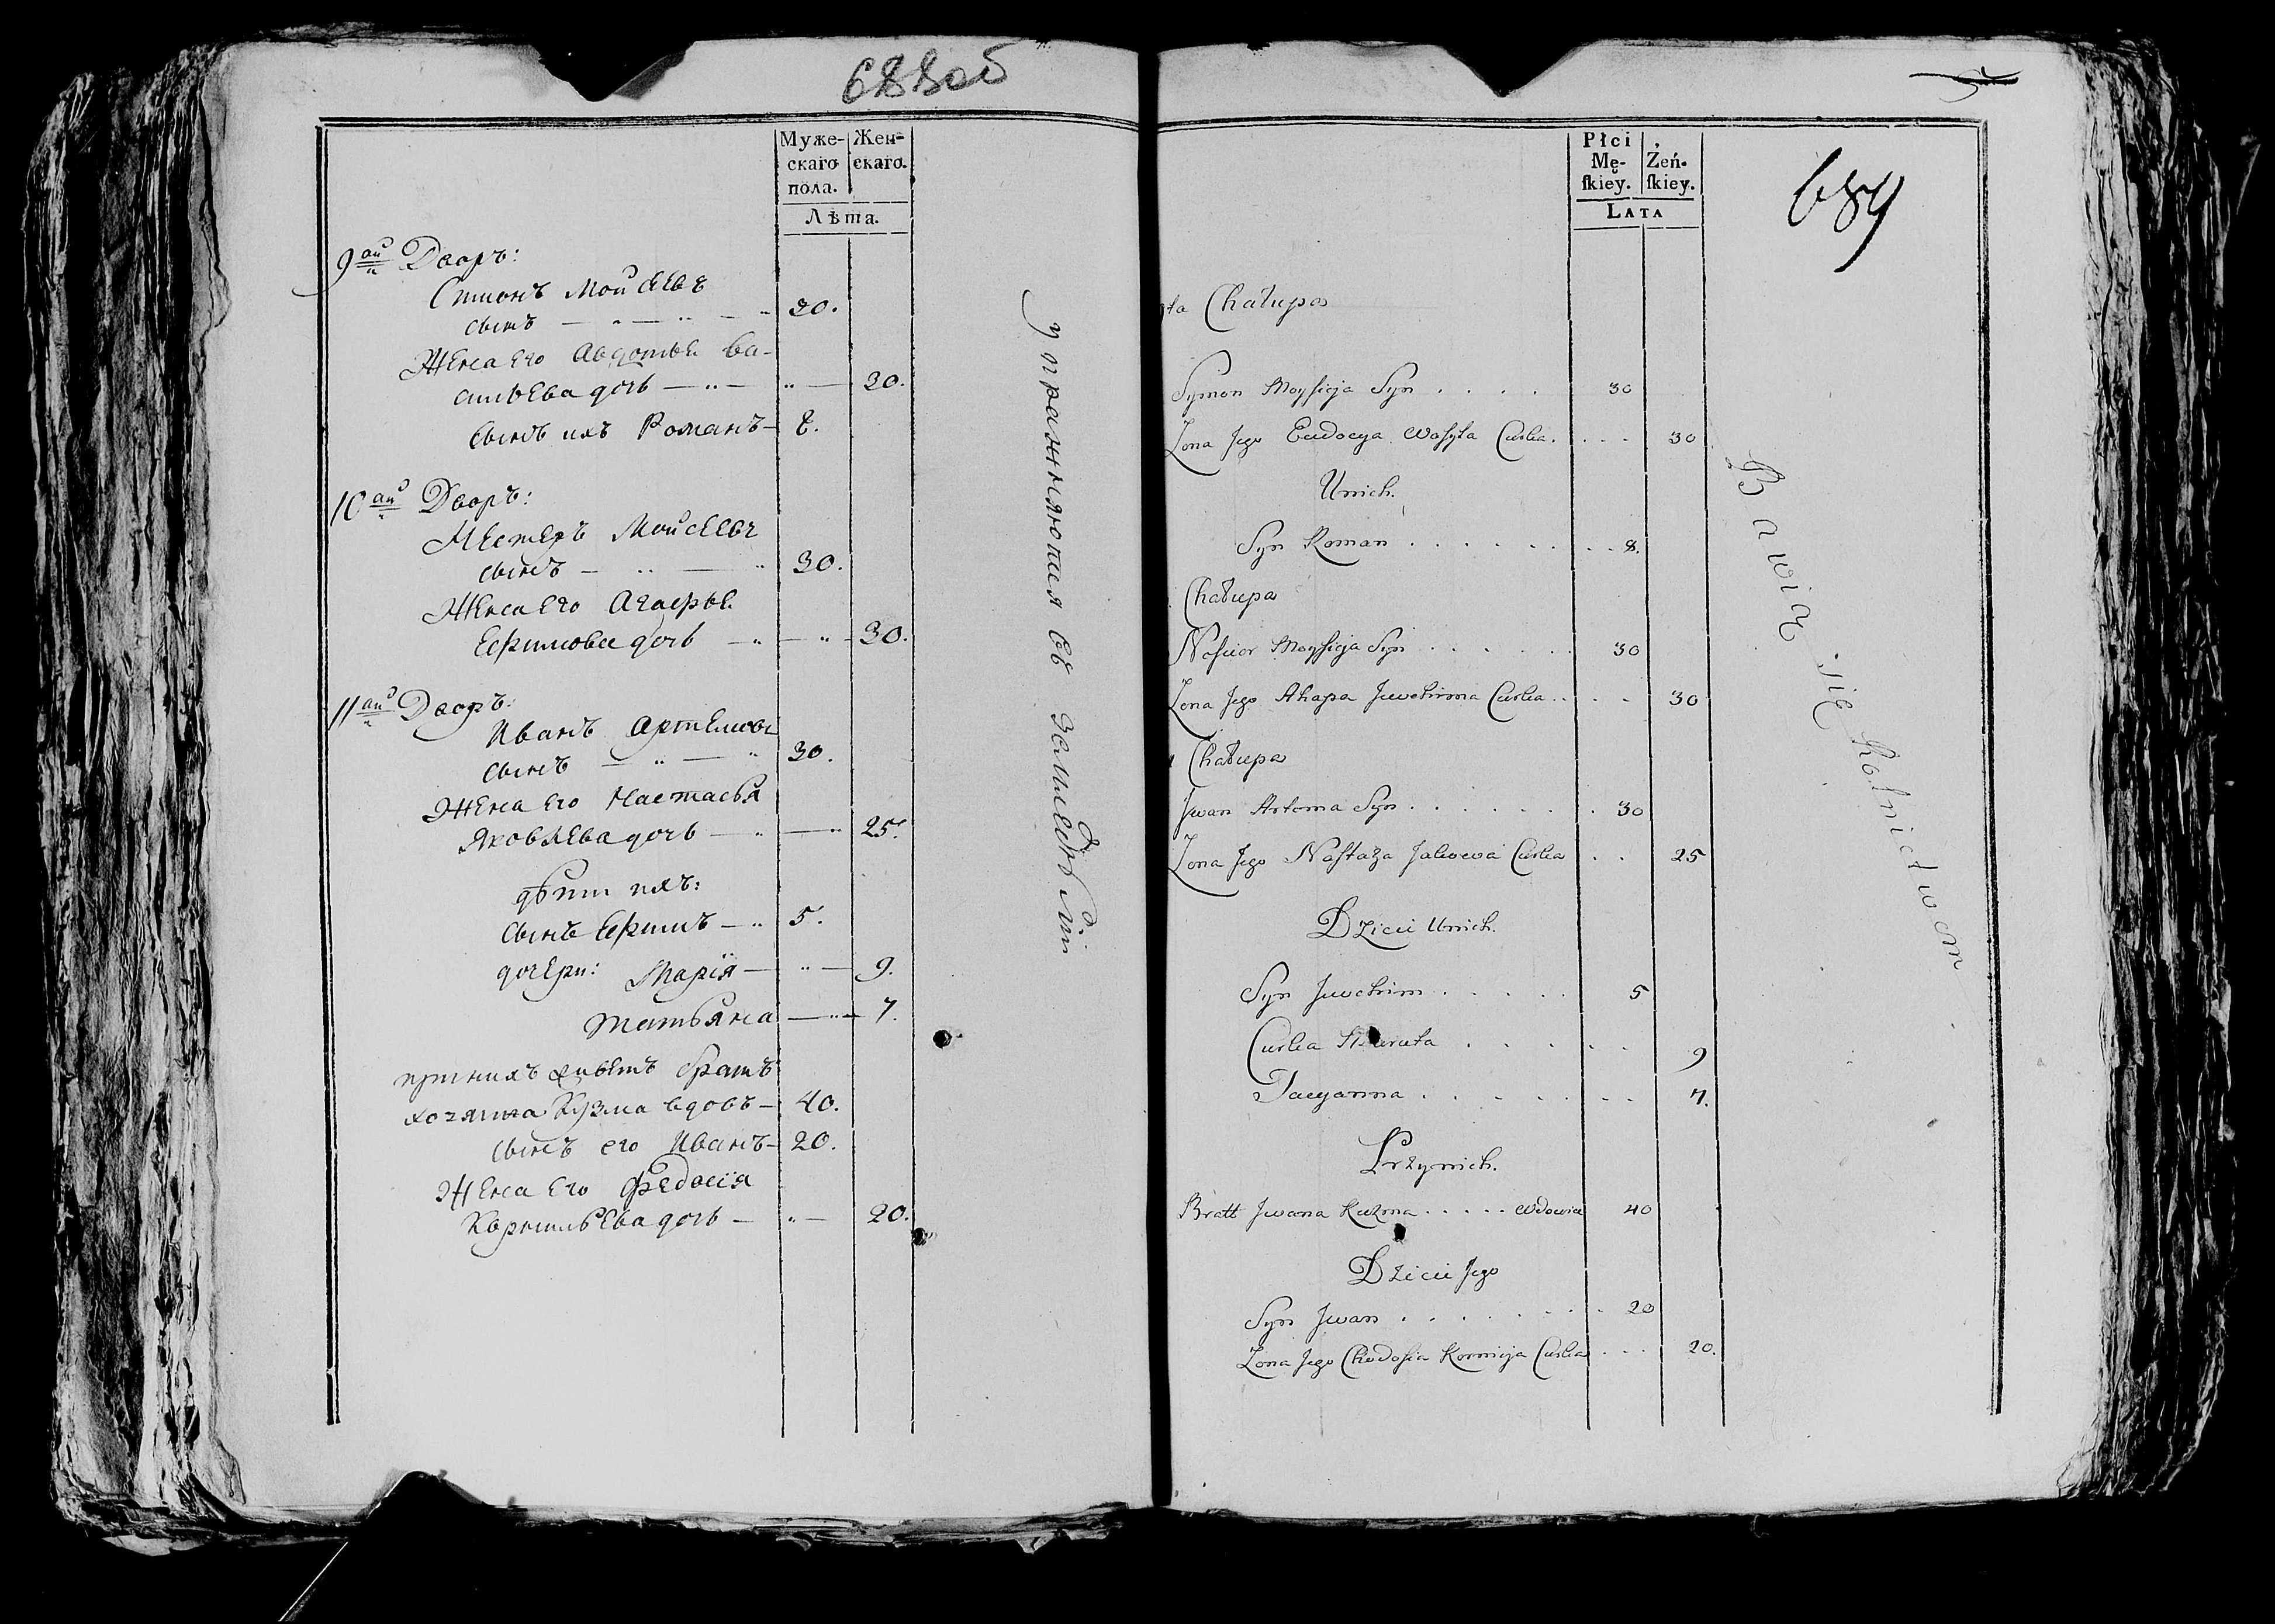 688об
Муже- Жен-
скаго скаго.
пола.
Лѣта.
9ай Дворъ:
Симонъ Мойсеевъ
сынъ 30.
Жена Его Авдотья Ва-
сильева дочь 30.
Сынъ ихъ Романъ 8.
10ай Дворъ:
Нестеръ Мойсеевъ
сынъ 30.
Жена Его Агафья
Ефимова дочь 30.
11ай Дворъ:
Иванъ Артемовъ
сынъ 30.
Жена Его Настасья
Яковлева дочь 25.
дѣти ихъ:
Сынъ Ефимъ 5.
дочери: Марія 9.
Татьяна 7.
при нихъ живетъ братъ
хозяина Кузма вдовъ 40.
сынъ его Иванъ 20.
Жена Его Федосія
Корнильева дочь 20.
упражняются въ земледѣліи
Płci
Mę- Żeń-
skiey. skiey.
LATA
689
ta Chałupa
Symon Moysieja Syn . . . . 30
Żona Jego Eudocya Wasyla Curka . . . . 30
Unich.
Syn Roman . . . . . . . . 8.
Chałupa
Nesticr Moysieja Syn . . . . . . 30
Żona Jego Ahapa Juvchima Curka . . . . 30
Chałupa
Jwan Artema Syn . . . . . . . 30
Żona Jego Nastazya Jakowa Curka . . 25
Dzieci Unich.
Syn Juvchim . . . . . 5
Curka Maruta . . . . . . 9
Tacyanna . . . . . . . . 7.
Przynich.
Bratt Jwana Kuzma . . . . . wdowiec 40
Dzieci Jego
Syn Jwan . . . . . . . . 20
Żona Jego Chwedosia Kornieja Curka . . . 20.
Bawią się Rolnictwem